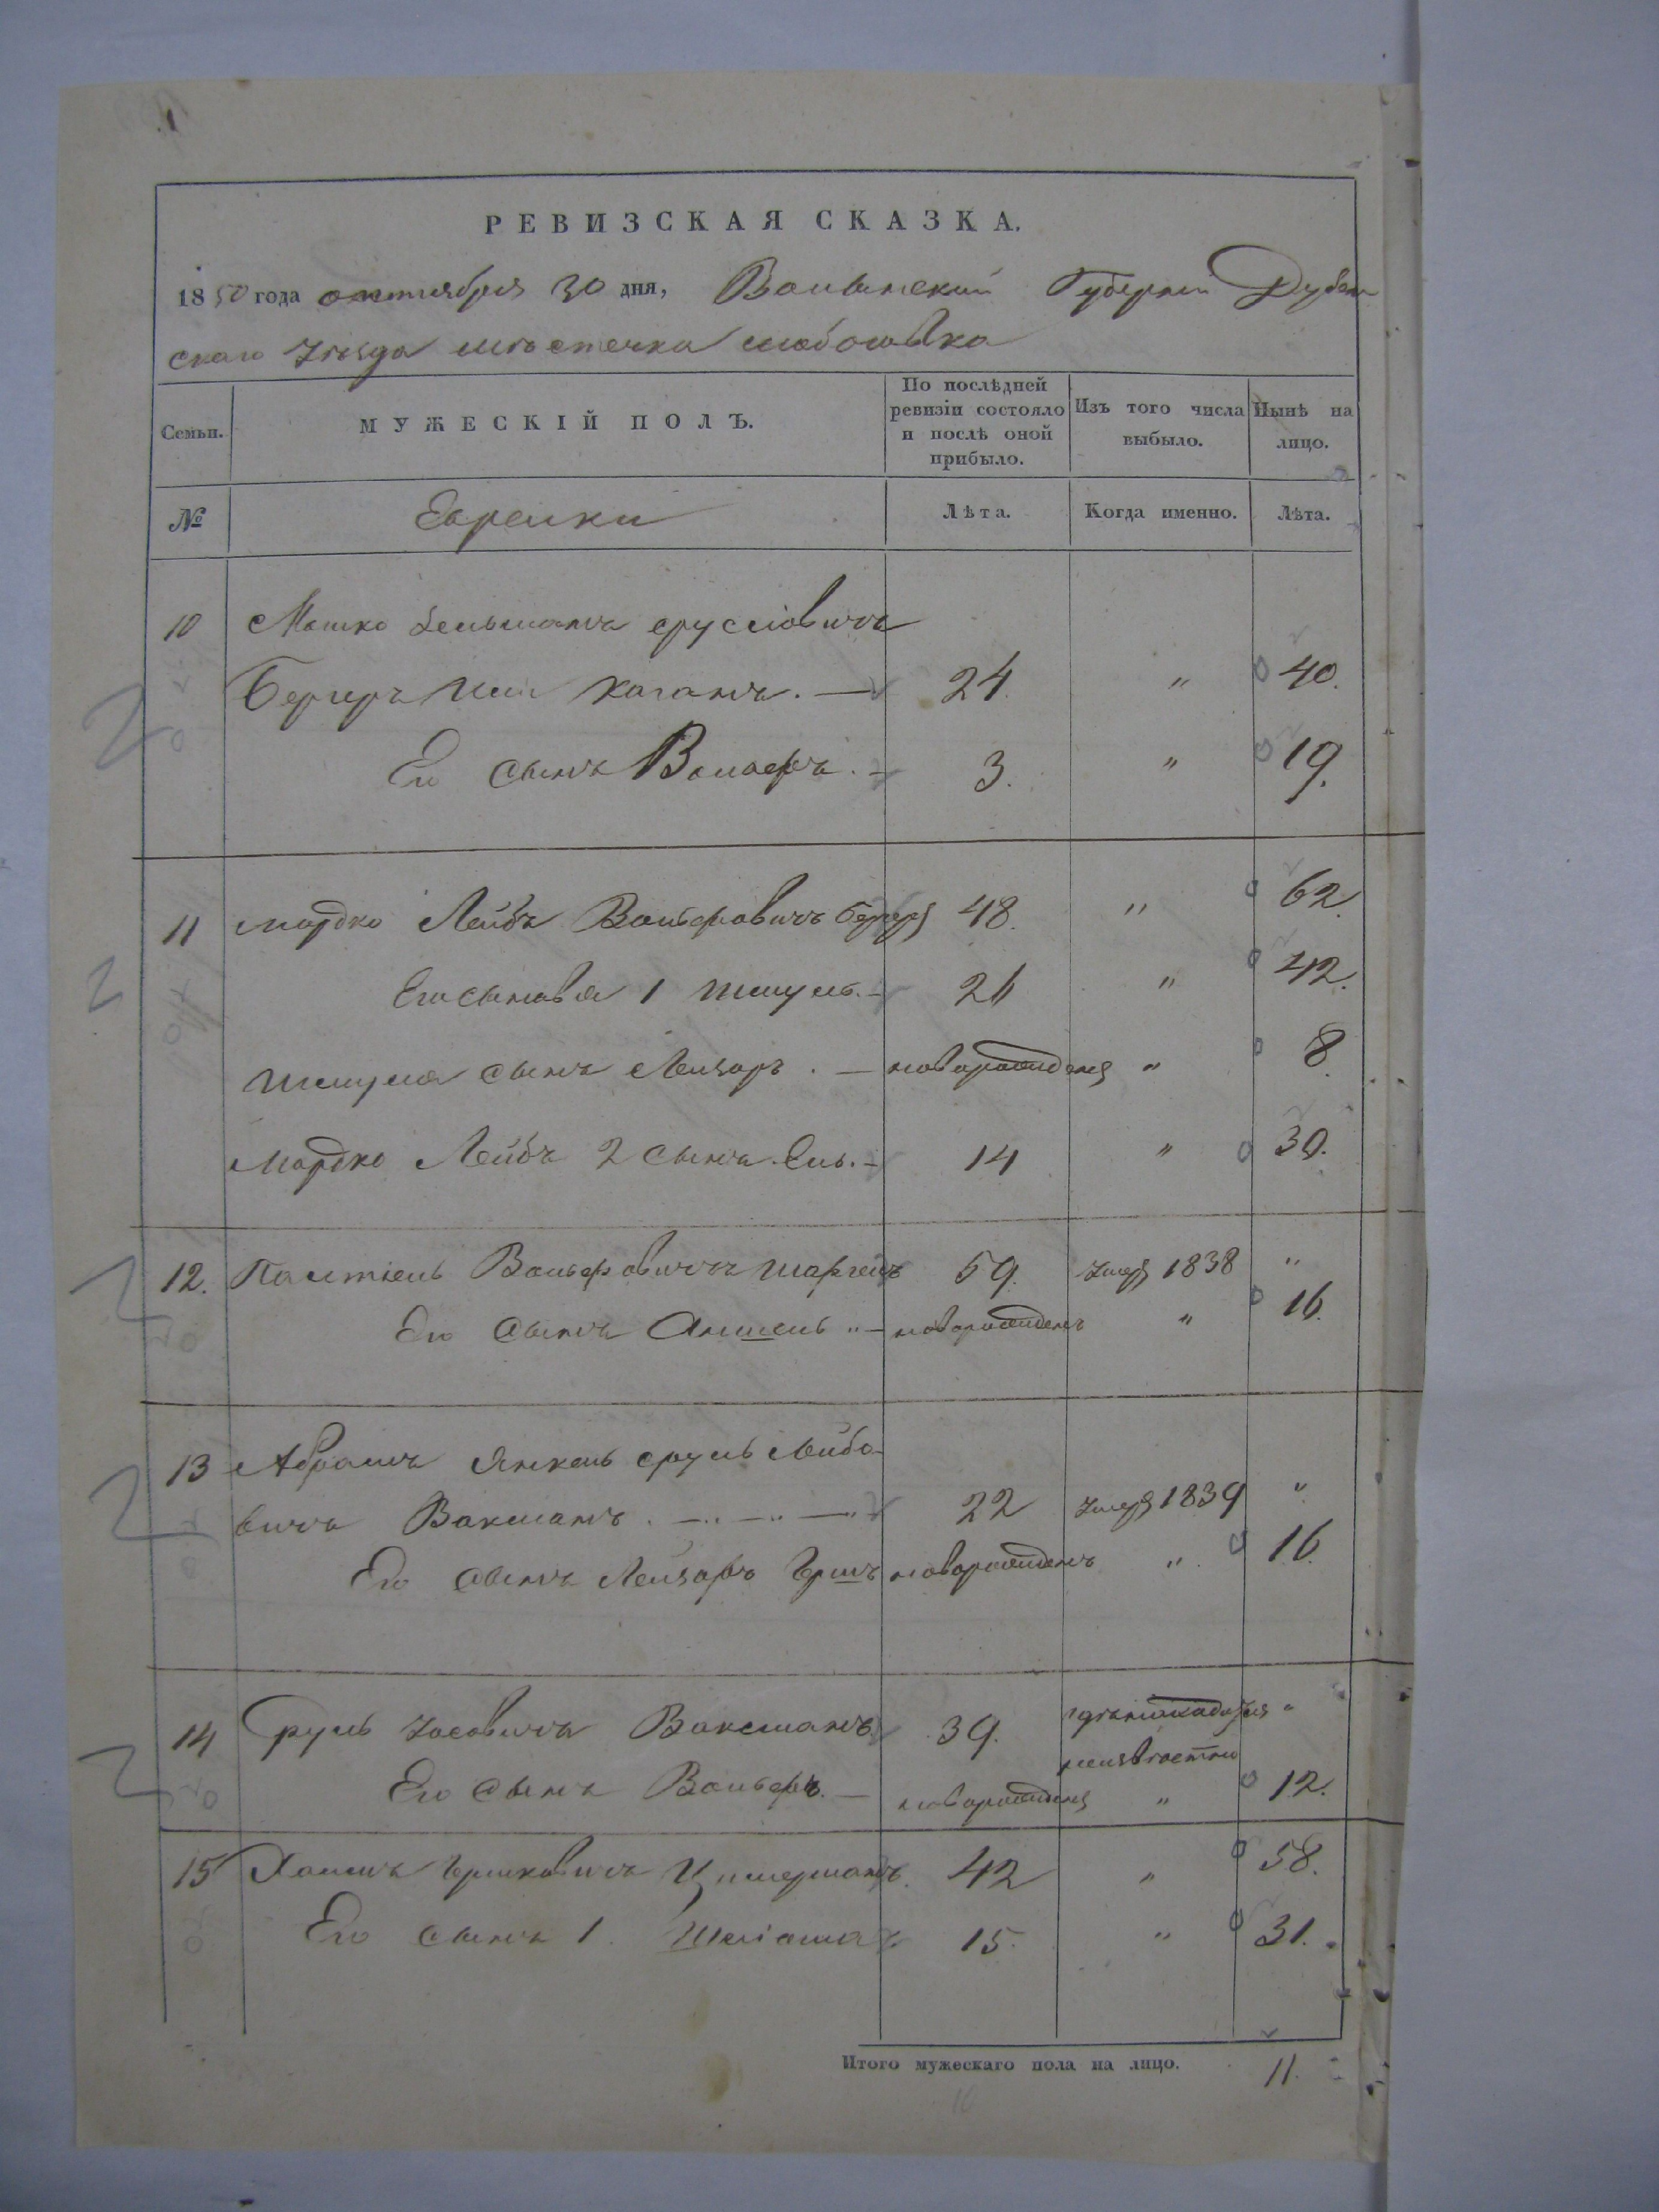 РЕВИЗСКАЯ СКАЗКА.
1850 года октября 30 дня, Волынской Губернии Дубен
скаго Уезда местечка
Семьи. МУЖЕСКІЙ ПОЛЪ. По послѣдней ревизіи состояло и послѣ оной прибыло. Изъ того числа выбыло. Нынѣ на лицо.
№ Евреики Лѣта. Когда именно. Лѣта.
10 Мошко Зельманъ Срулевичъ
Бергеръ Каганъ. — 24. " 40.
Его сынъ Вольфъ. — 3. " 19.
11 Мордко Лейбъ Вольфовичъ Бергеръ 48. " 62.
Его сыновья 1 Шмуль. — 26 " 42.
Шмуля сынъ Лейзоръ. — новорожденъ " 8
Мордко Лейбъ 2 сынъ Ель. — 14 " 30.
12. Палтіель Вольфовичъ 59. Умеръ 1838 "
Его сынъ Аншель " — новорожденъ " 16.
13 Абрамъ Янкель Сруль Лейбо-
вичъ Ваксманъ. — 22 умеръ 1839 "
Его сынъ Лейзоръ Гершъ новорожденъ " 16.
14 Сруль Іосовичъ Ваксманъ. 39. неизвѣстно "
Его сынъ Вольфъ. — новорожденъ " 12.
15 Хаимъ Гершковичъ Цимерманъ. 42 " 58.
Его сынъ 1. 15. " 31.
Итого мужескаго пола на лицо. 11.